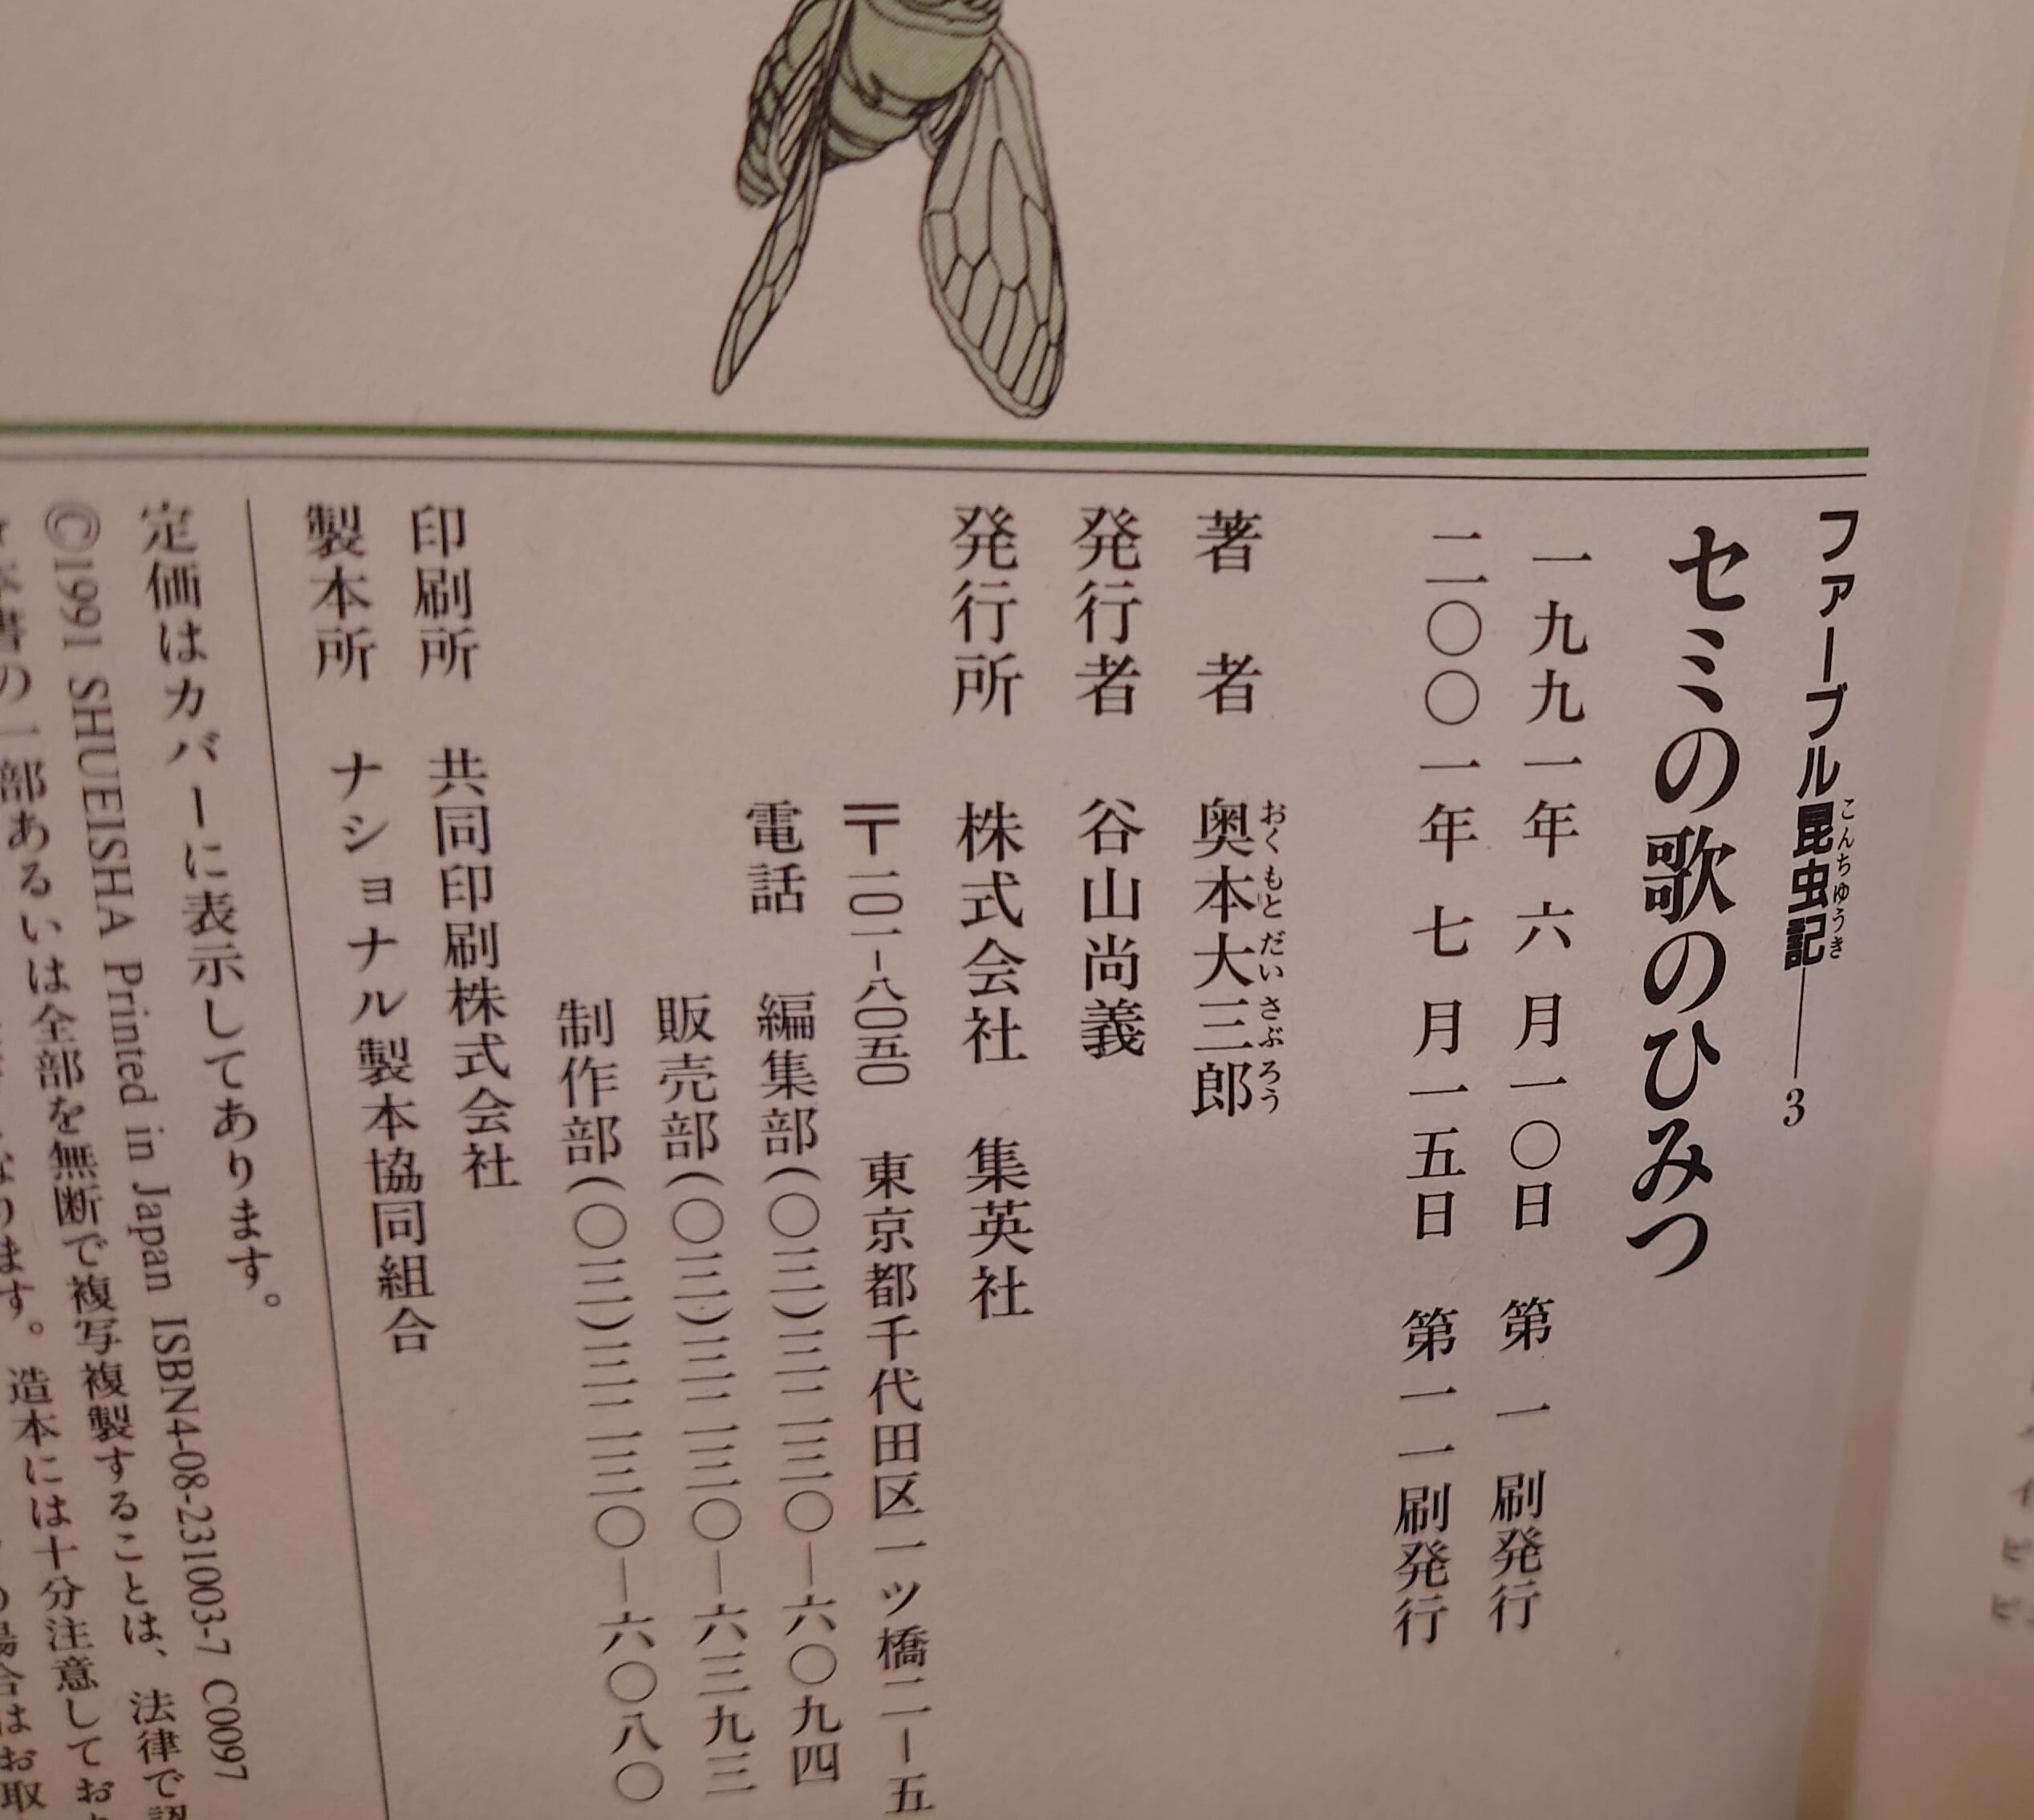 ファーブル昆虫記――3
こんちゅうき
セミの歌のひみつ
一九九一年 六 月一〇日 第 一 刷発行
二〇〇一年 七 月一五日 第一一刷発行
著 者 奥本大三郎
おくもとだいさぶろう
発行者 谷山尚義
発行所 株式会社 集英社
〒一〇一-八〇五〇 東京都千代田区一ツ橋二-五
電話 編集部(〇三)三二三〇―六〇九四
販売部(〇三)三二三〇―六三九三
制作部(〇三)三二三〇―六〇八〇
印刷所 共同印刷株式会社
製本所 ナショナル製本協同組合
定価はカバーに表示してあります。
©1991 SHUEISHA Printed in Japan ISBN4-08-231003-7 C0097
本書の一部あるいは全部を無断で複写複製することは、法律で認
ります。造本には十分注意してお
場合はお取